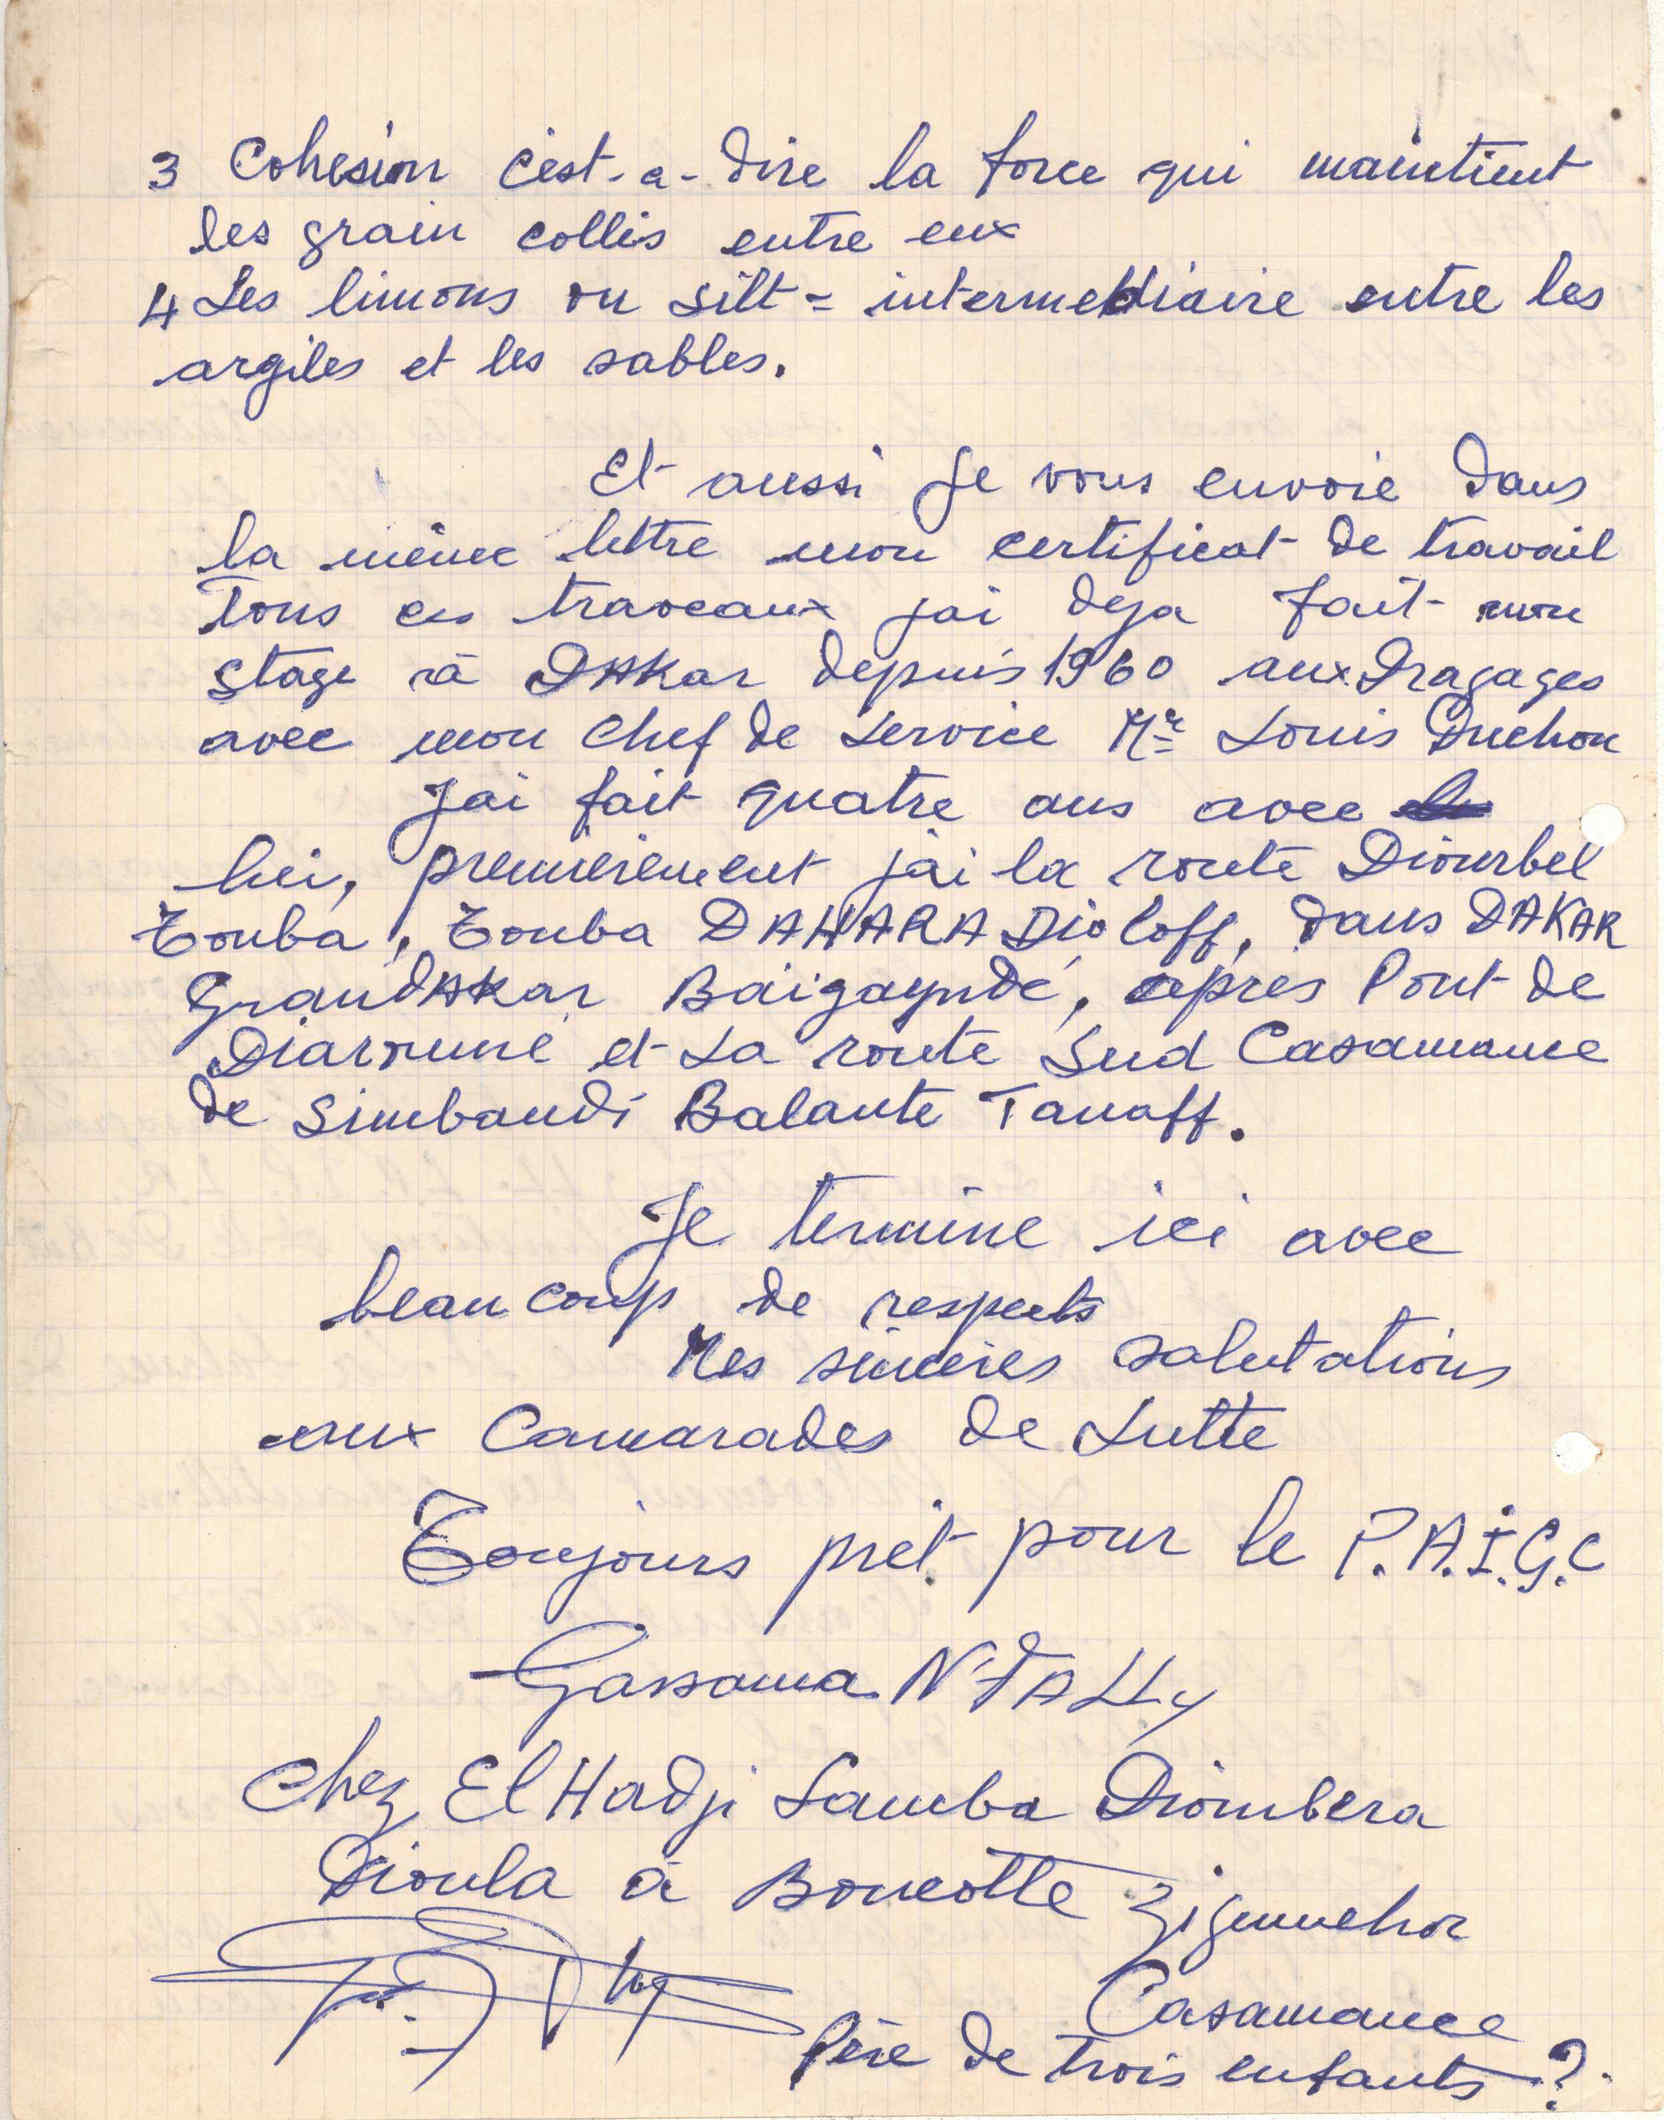 3 Cohesion c'est-a-dire la force qui maintient
les grain collis entre eux
4 Les limons ou silt = intermediaire entre les
argiles et les sables.
Et aussi je vous envoie dans
la même lettre mon certificat de travail
Tous ces traveaux j'ai deja fait mon
stage à DAKar depuis 1960 aux Dragages
avec mon chef de service Mr Louis Duchon
J'ai fait quatre ans avec
lui, premièrement j'ai la route Diourbel
Touba, Touba DAHARA Dioloff, dans DAKAR
GranDAKar Baïgayndé, après Pont de
Diaroumé et La route Sud Casamance
de Simbandi Balante Tanaff.
Je termine ici avec
beaucoup de respects
Mes sincères salutations
aux Camarades de Lutte
Toujours prêt pour le P.A.I.G.C
Gassama N'FALLy
Chez El Hadji Samba Diombera
Dioula à Boucotte Ziguinchor
Casamance
Père de trois enfants ?